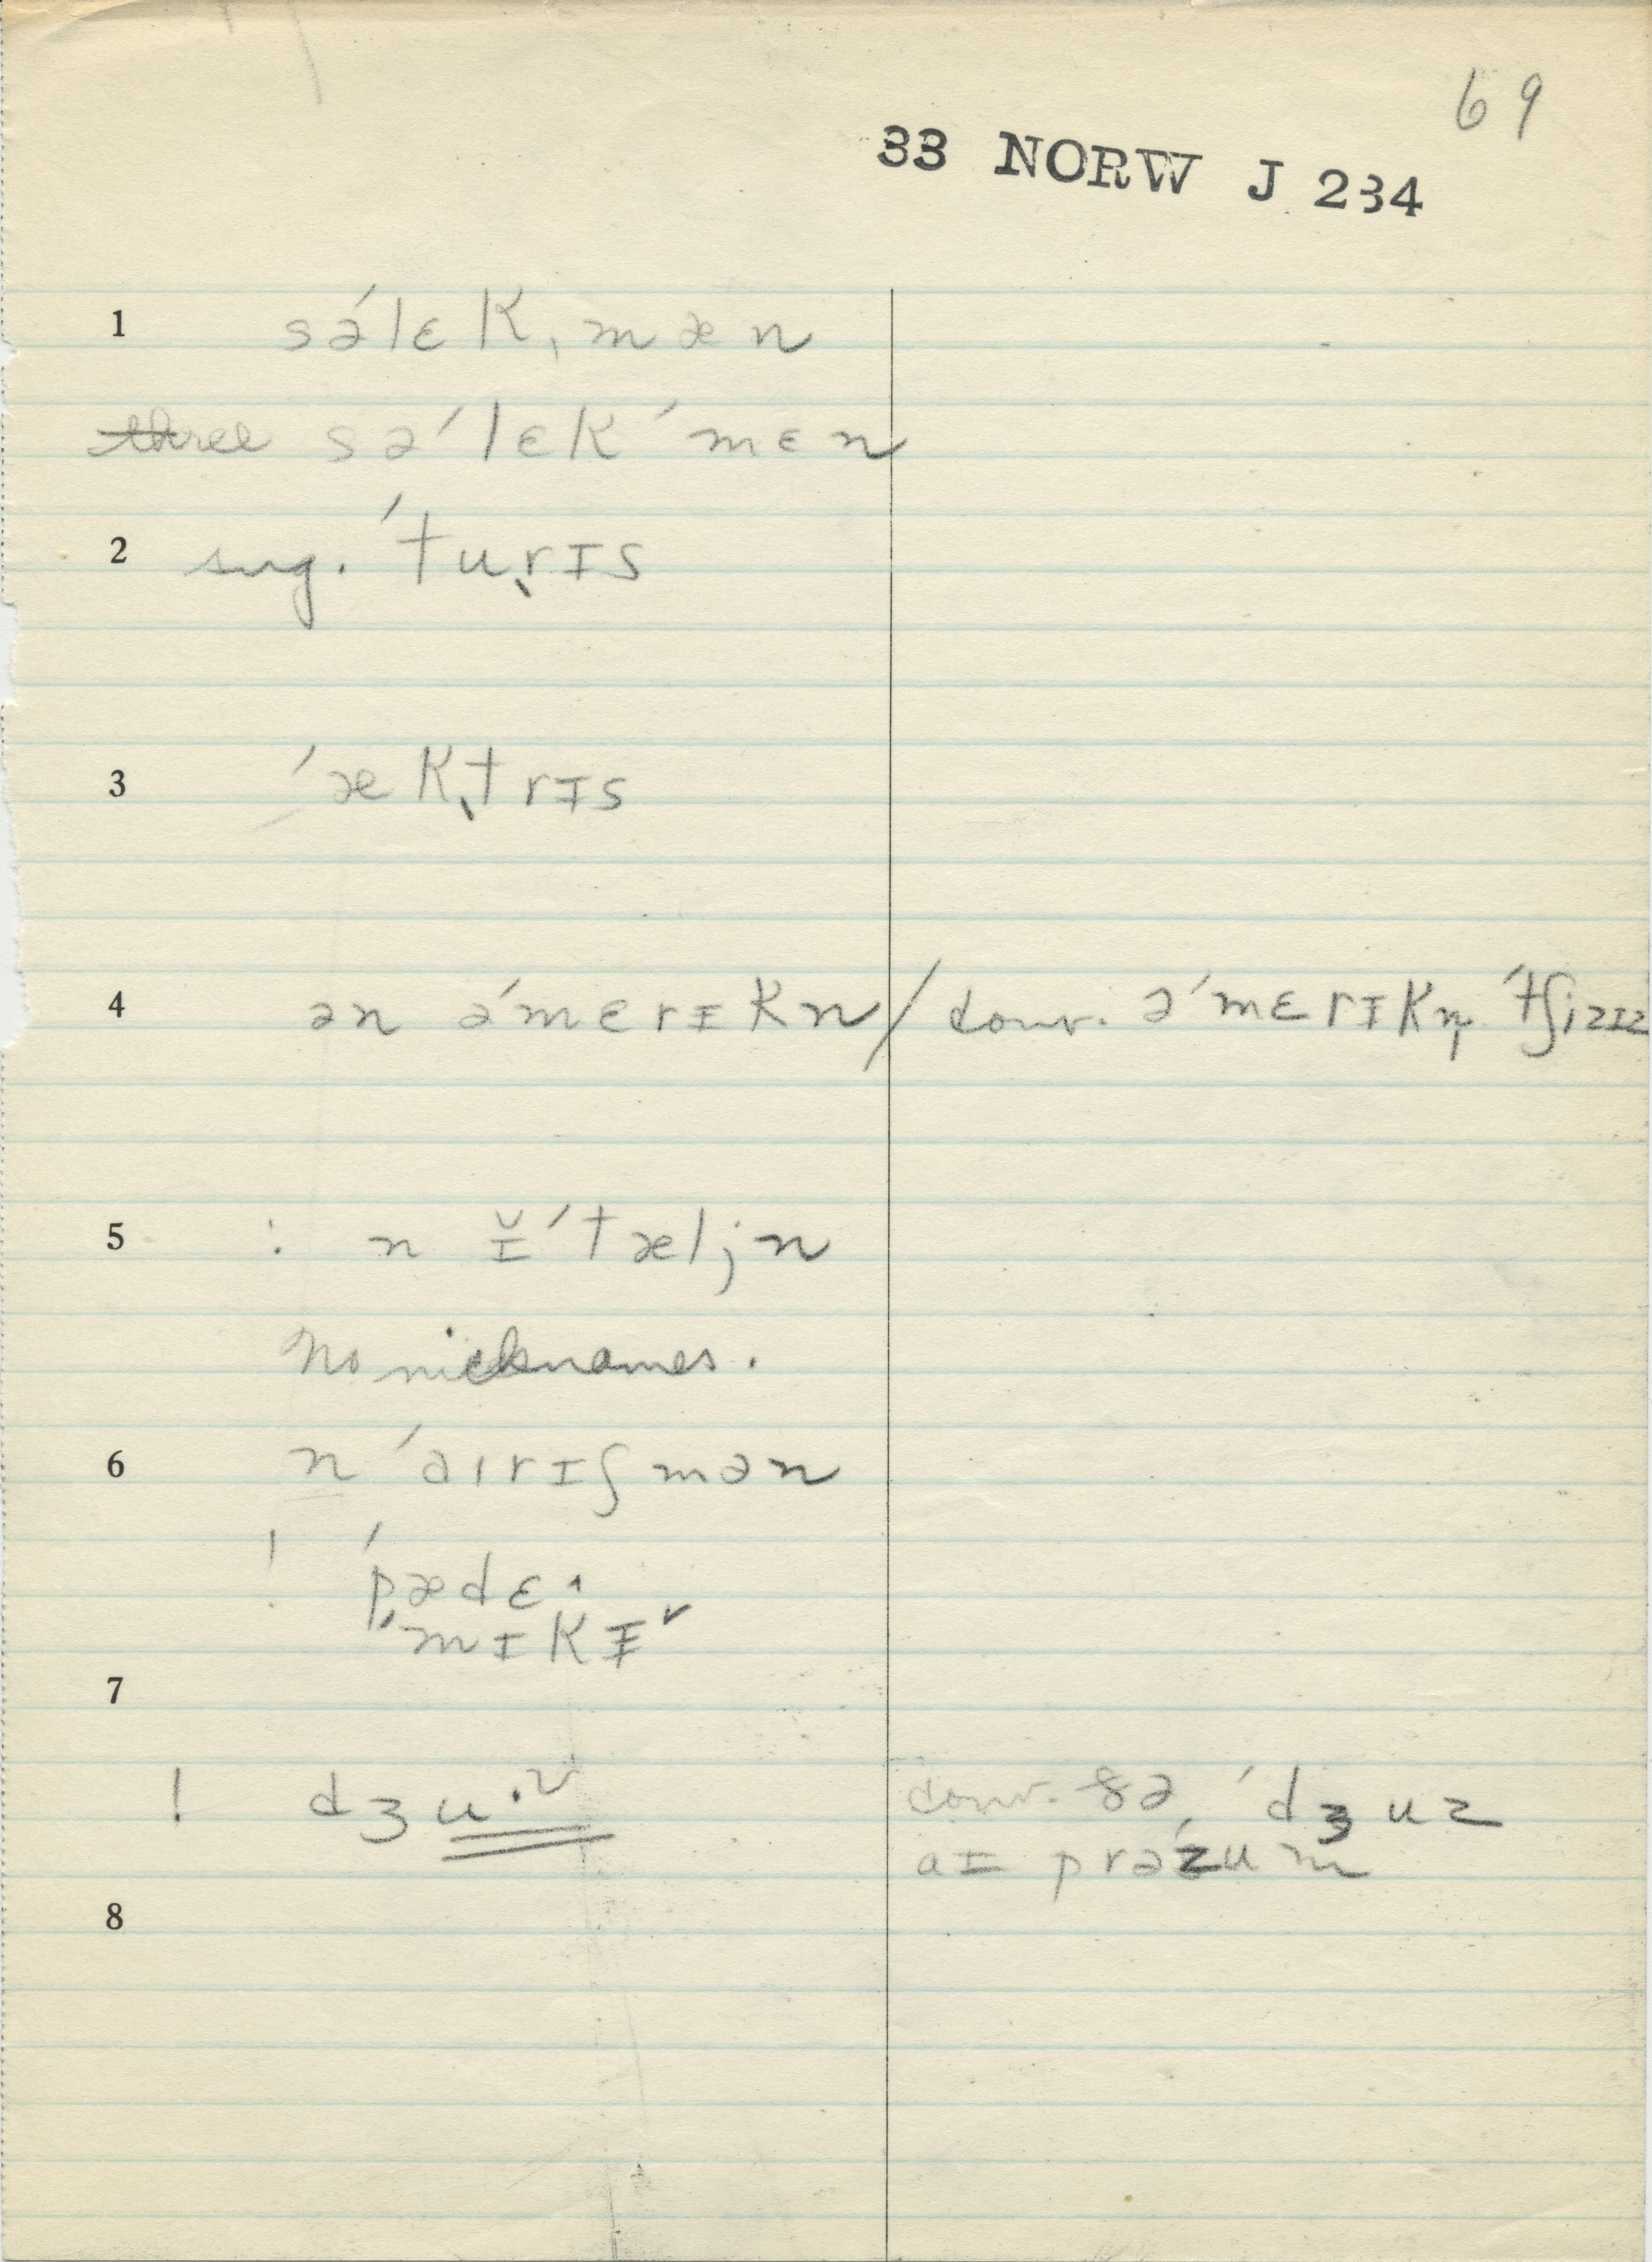 69
33 NORW J 234
1 sə́lɛk,mæn
three sə́lɛkˊmɛn
2 sug. ˊtu,rɪs
3 ˊæk,trɪs
4 ən əˊmɛrɪkn / conv. əˊmɛrɪkn̩ ˊtʃizɪz
5 : n ɪ̆ˊtæljn
No nicknames.
6 n ˊaɪrɪʃmən
! ˊpædɛ^
ˊmɪkɪˇ
7
! dʒu·ᵛ conv. ðə ˊdʒuz
aɪ prəˊzum
8